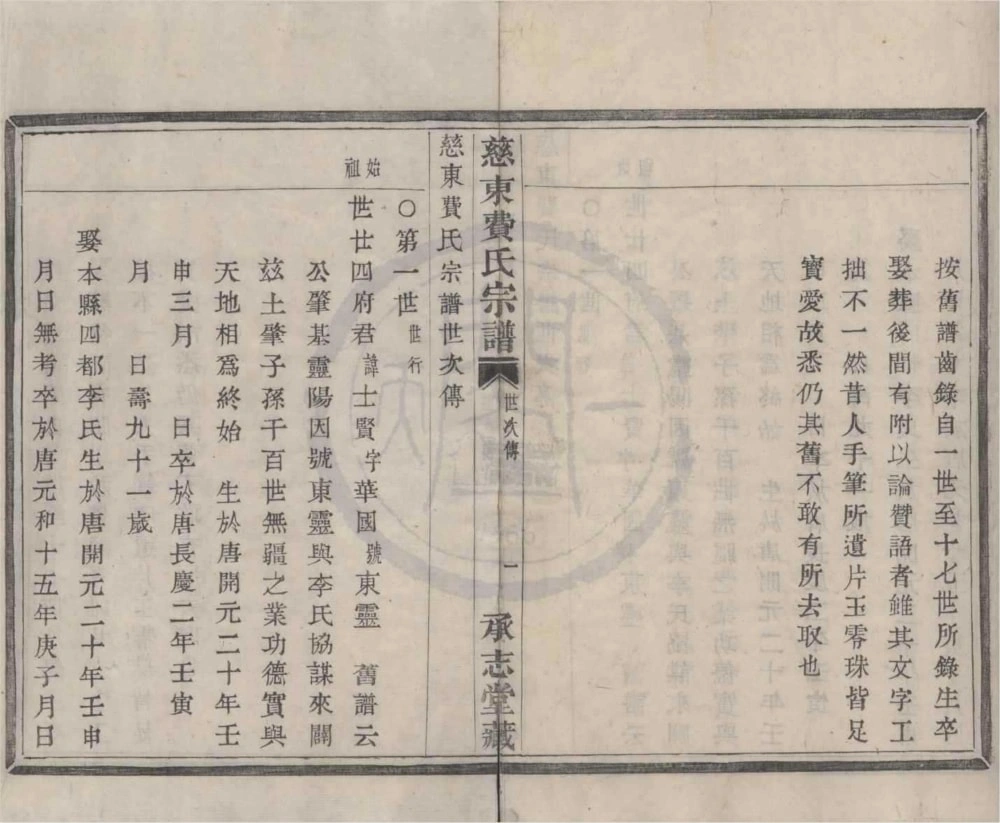 按舊譜齒錄自一世至十七世所錄生卒
娶葬後間有附以論贊語者雖其文字工
拙不一然昔人手筆所遺片玉零珠皆足
寶愛故悉仍其舊不敢有所去取也
慈東費氏宗譜 世次傳 一 承志堂藏
慈東費氏宗譜世次傳
○第一世 世行
始祖
世廿四府君諱士賢字華國號東靈 舊譜云
公肇基靈陽因號東靈與李氏協謀來闢
玆土肇子孫千百世無疆之業功德實與
天地相爲終始 生於唐開元二十年壬
申三月 日卒於唐長慶二年壬寅
月 日壽九十一歲
娶本縣四都李氏生於唐開元二十年壬申
月日無考卒於唐元和十五年庚子月日